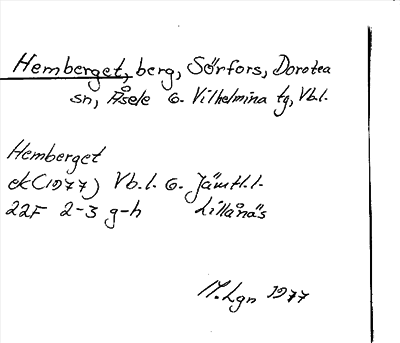 Hemberget, berg, Sörfors, Dorotea
sn, Åsele o. Vilhelmina tg, Vb.l.
Hemberget
ek (1977) Vb.l. o. Jämtl.l.
22F 2-3 g-h Lillånäs
M.Lgn 1977